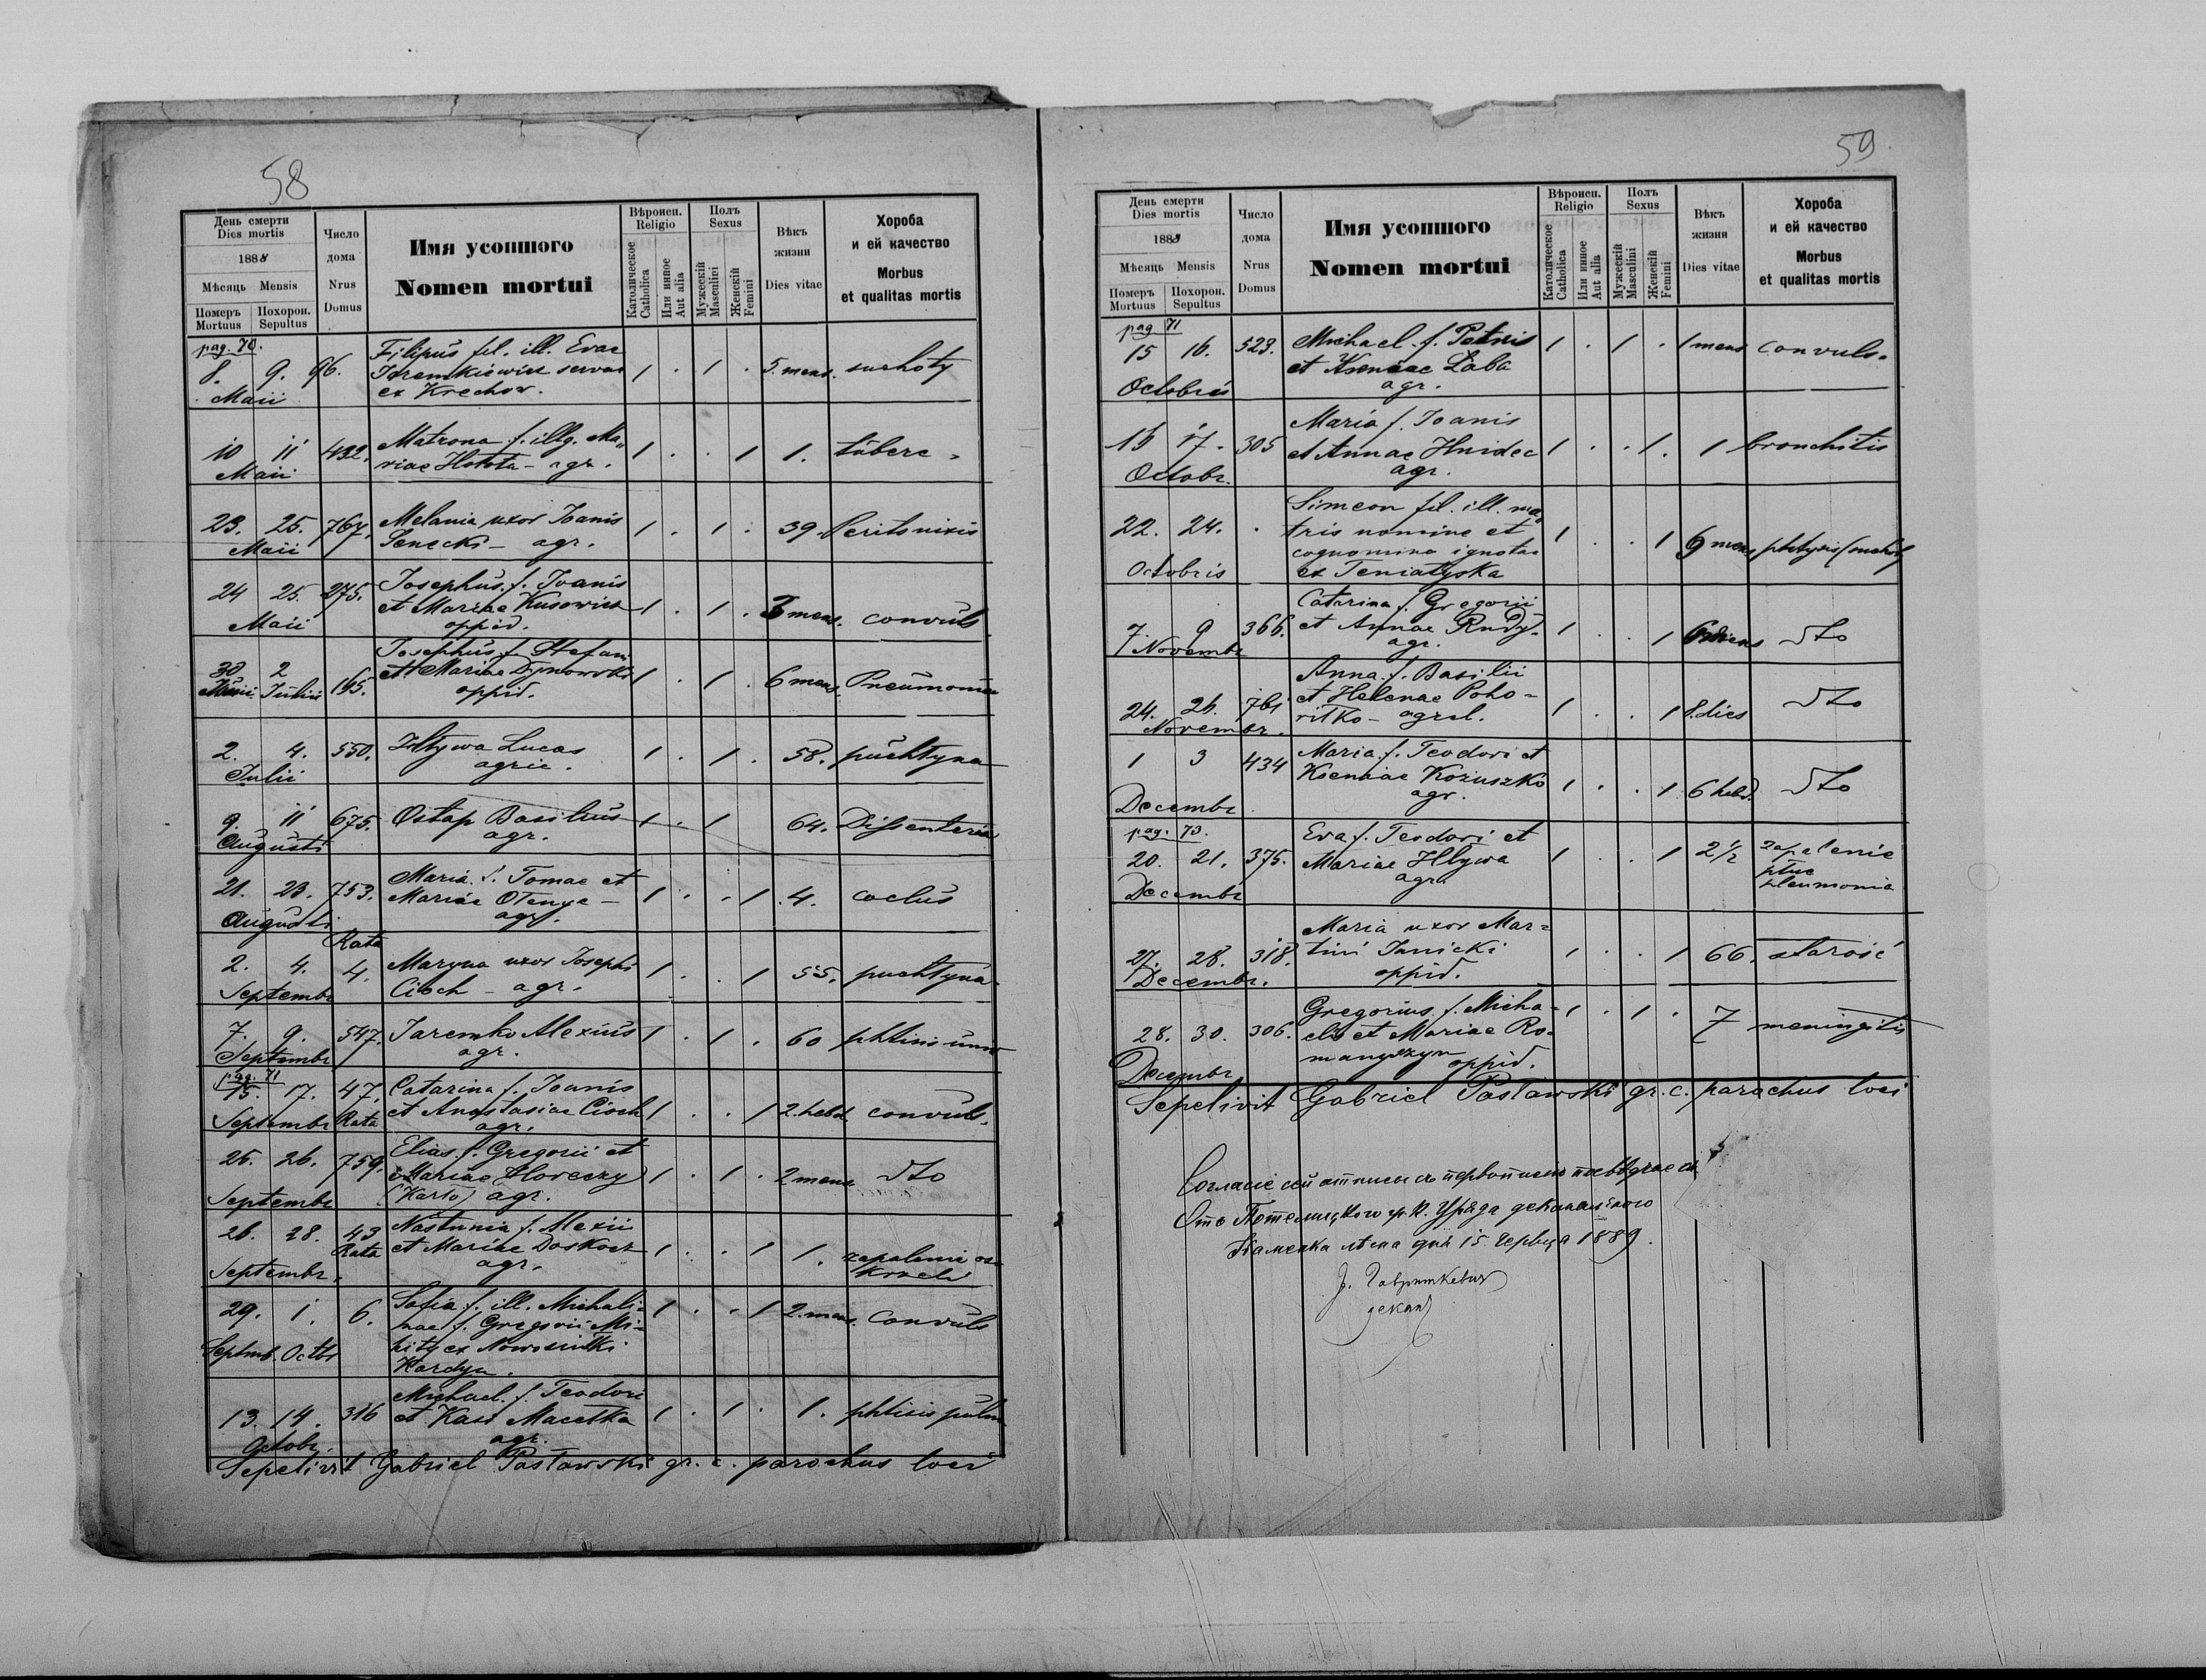 58
День смерти
Dies mortis
1888
Мѣсяць Mensis
Померъ Похорон.
Mortuus Sepultus
Число дома
Nrus Domus
Имя усопшого
Nomen mortui
Вѣроисп.
Religio
Католическое Catholica
Или инное Aut alia
Полъ
Sexus
Мужескій Masculini
Женскій Femini
Вѣкъ жизни
Dies vitae
Хороба
и ей качество
Morbus
et qualitas mortis
pag. 70.
Filipus fil. ill. Evae
8. 9. 96. servae 1 . 1 . 5. mens. suchoty
Maii ex Krechow.
10 11 432. Matrona f. illg. Ma„ 1 . . 1 1. tuberc
Maii riae Hotota - agr.
23. 25. 767. Melania uxor Ioanis 1 . 1 . 39. Peritonixis
Maii Senecki - agr.
24 25. 275. Iosephus f. Ioanis
Maii et Mariae Kusowicz 1 . 1 . 3 mens. convuls.
oppid.
Iosephus f. Stefani
30 2 195. et Mariae Dymowski 1 . 1 . 6 mens. Pneumonia
Junii Julii oppid.
2. 4. 550. Hltywa Lucas 1 . 1 . 58. puchtyna
Julii agric.
9. 11 675. Ostap Basilius 1 . 1 64. Dissenteria
Augusti agr.
21. 23. 753. Maria f. Tomae et 1 . . 1 4. coclus
Augusti Mariae Otenyc -
agr.
Rata
2. 4. 4. Maryna uxor Josephi 1 . . 1 55. puchtyna
Septembr Cioch - agr.
7. 9. 547. Jaremko Alexius 1 . 1 . 60 phtisis
Septembr agr.
pag. 71
15. 17. 47. Catarina f. Ioanis
Septembr Rata et Anastasiae Cioch 1 . . 1 2. hebd. convuls.
agr.
25. 26. 759. Elias f. Gregorii et
Septembr Mariae Horeczy 1 . 1 . 2 mens dto
agr.
26. 28. 43 Nastunia f. Alexii
Rata et Mariae Doskocz 1 . . 1 1. zapalenie os-
Septembr. agr. krzeli
29. 1. 6. Sofia f. ill. Michali- 1 . . 1 2. mens. convuls
nae f. Gregorii Mi-
Septmb. Octbr hity ex Nowosiułki
Kardyn.
Michael f. Teodori
13. 14. 316 et Kasi Macetka 1 . 1 . 1. phtisis pulm
Octobr. agr.
Sepelivit Gabriel Pasławski gr. c. parochus loci
59.
День смерти
Dies mortis
1888
Мѣсяць Mensis
Померъ Похорон.
Mortuus Sepultus
Число дома
Nrus Domus
Имя усопшого
Nomen mortui
Вѣроисп.
Religio
Католическое Catholica
Или инное Aut alia
Полъ
Sexus
Мужескій Masculini
Женскій Femini
Вѣкъ жизни
Dies vitae
Хороба
и ей качество
Morbus
et qualitas mortis
pag 71
15 16. 523. Michael f. Petris 1 . 1 . 1 mens convuls.
Octobris et Kseniae Łaba
agr.
Maria f. Ioanis
16 17. 305 et Annae Hnidec 1 . . 1. 1 bronchitis
Octobr. agr.
Simeon fil. ill. ma„
22. 24. . tris nomine et 1 . . 1 9 mens
cognomine ignotae
Octobris ex Teniatyska
Catarina f. Gregorii
7. 9 366. et Annae Rudy. 1 . . 1 dto
Novembr agr.
Anna f. Basilii
24. 26. 761 et Helenae Poho- 1 . . 1 8. dies dto
Novembr. ritko - agrcl.
1 3 434 Maria f. Teodori et
Kseniae Kożuszko 1 . . 1 6 hebd. dto
Decembr agr.
pag. 73.
20. 21. 375. Eva f. Teodori et 1 . . 1 2½ zapalenie
Mariae Hltywa płuc
Decembr agr. pleumonia
Maria uxor Mar-
27. 28. 318. tini Janicki 1 . . 1 66. starość
Decembr. oppid.
Gregorius f. Micha- 1 . 1 . 7 meningitis
28. 30. 306. elis et Mariae Ro-
Decembr manyszyn oppid.
Sepelivit Gabriel Pasławski gr. c. parochus loci
Согласіе сей отписи съ первописею
Отъ Потелицкого гр. к. Уряда деканального
Каменка дня 15 Червця 1889.
декан